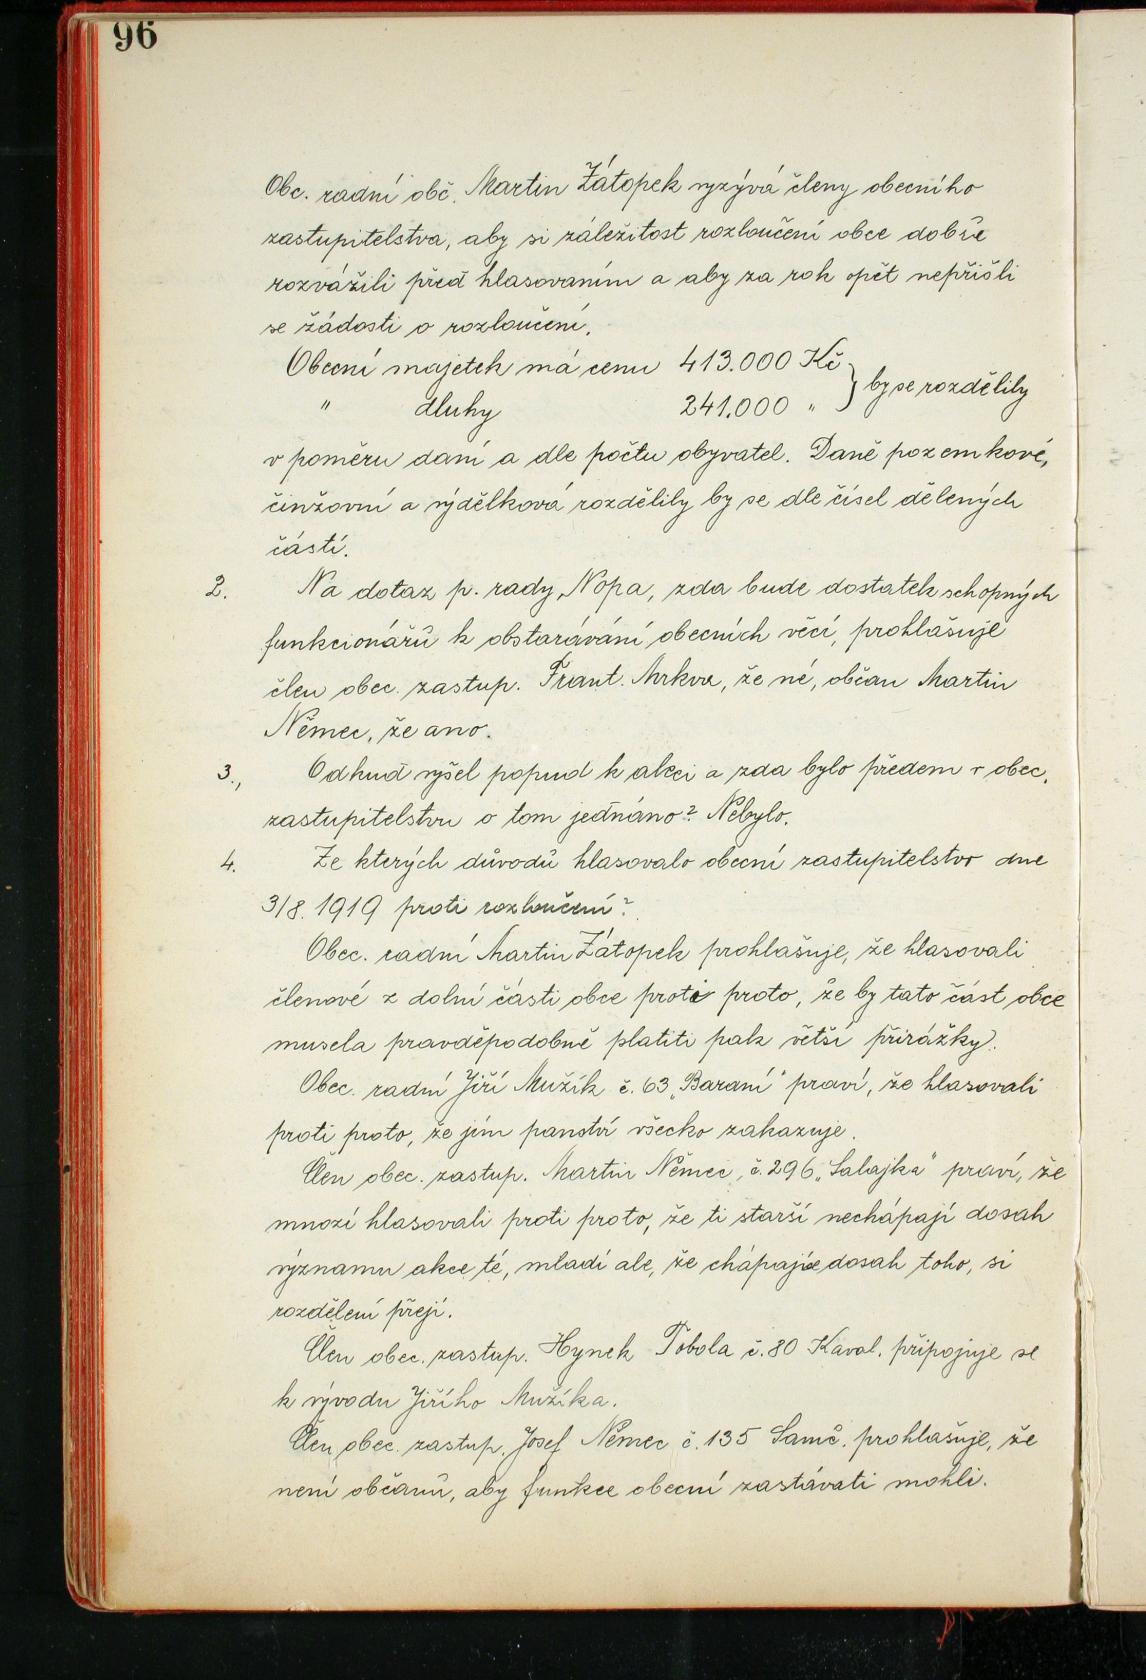 96
Obc. radní obč. Martin Žátopek vyzývá členy obecního
zastupitelstva, aby si záležitost rozloučení obce dobře
rozvážili před hlasovaním a aby za rok opět nepřišli
se žádosti o rozloučení.
Obecní majetek má cenu 413.000 Kč } by se rozdělily
" dluhy 241.000 "
v poměru daní a dle počtu obyvatel. Daně pozemkové,
činžovní a výdělková rozdělily by se dle čísel dělených
částí.
2. Na dotaz p. rady Nopa, zda bude dostatek schopných
funkcionářů k obstarávání obecních věcí, prohlašuje
člen obec. zastup. Frant. Mrkva, že né, občan Martin
Němec, že ano.
3., Odkud vyšel popud k akci a zda bylo předem v obec.
zastupitelstvu o tom jednáno? Nebylo.
4. Ze kterých důvodů hlasovalo obecní zastupitelstvo dne
3/8. 1919 proti rozloučení?
Obec. radní Martin Žátopek prohlašuje, že hlasovali
členové z dolní části obce proti proto, že by tato část obce
musela pravděpodobně platiti pak větší přirážky.
Obec. radní Jiří Mužík č. 63 „Baraní" praví, že hlasovali
proti proto, že jim panství všecko zakazuje.
Člen obec. zastup. Martin Němec, č. 296 „Salajka" praví, že
mnozí hlasovali proti proto, že ti starší nechápají dosah
významu akce té, mladí ale, že chápajíce dosah toho, si
rozdělení přejí.
Člen obec. zastup. Hynek Tobola č. 80 Kaval. připojuje se
k vývodu Jiřího Mužíka.
Člen obec. zastup. Josef Němec č. 135 Samč. prohlašuje, že
není občanů, aby funkce obecní zastávati mohli.